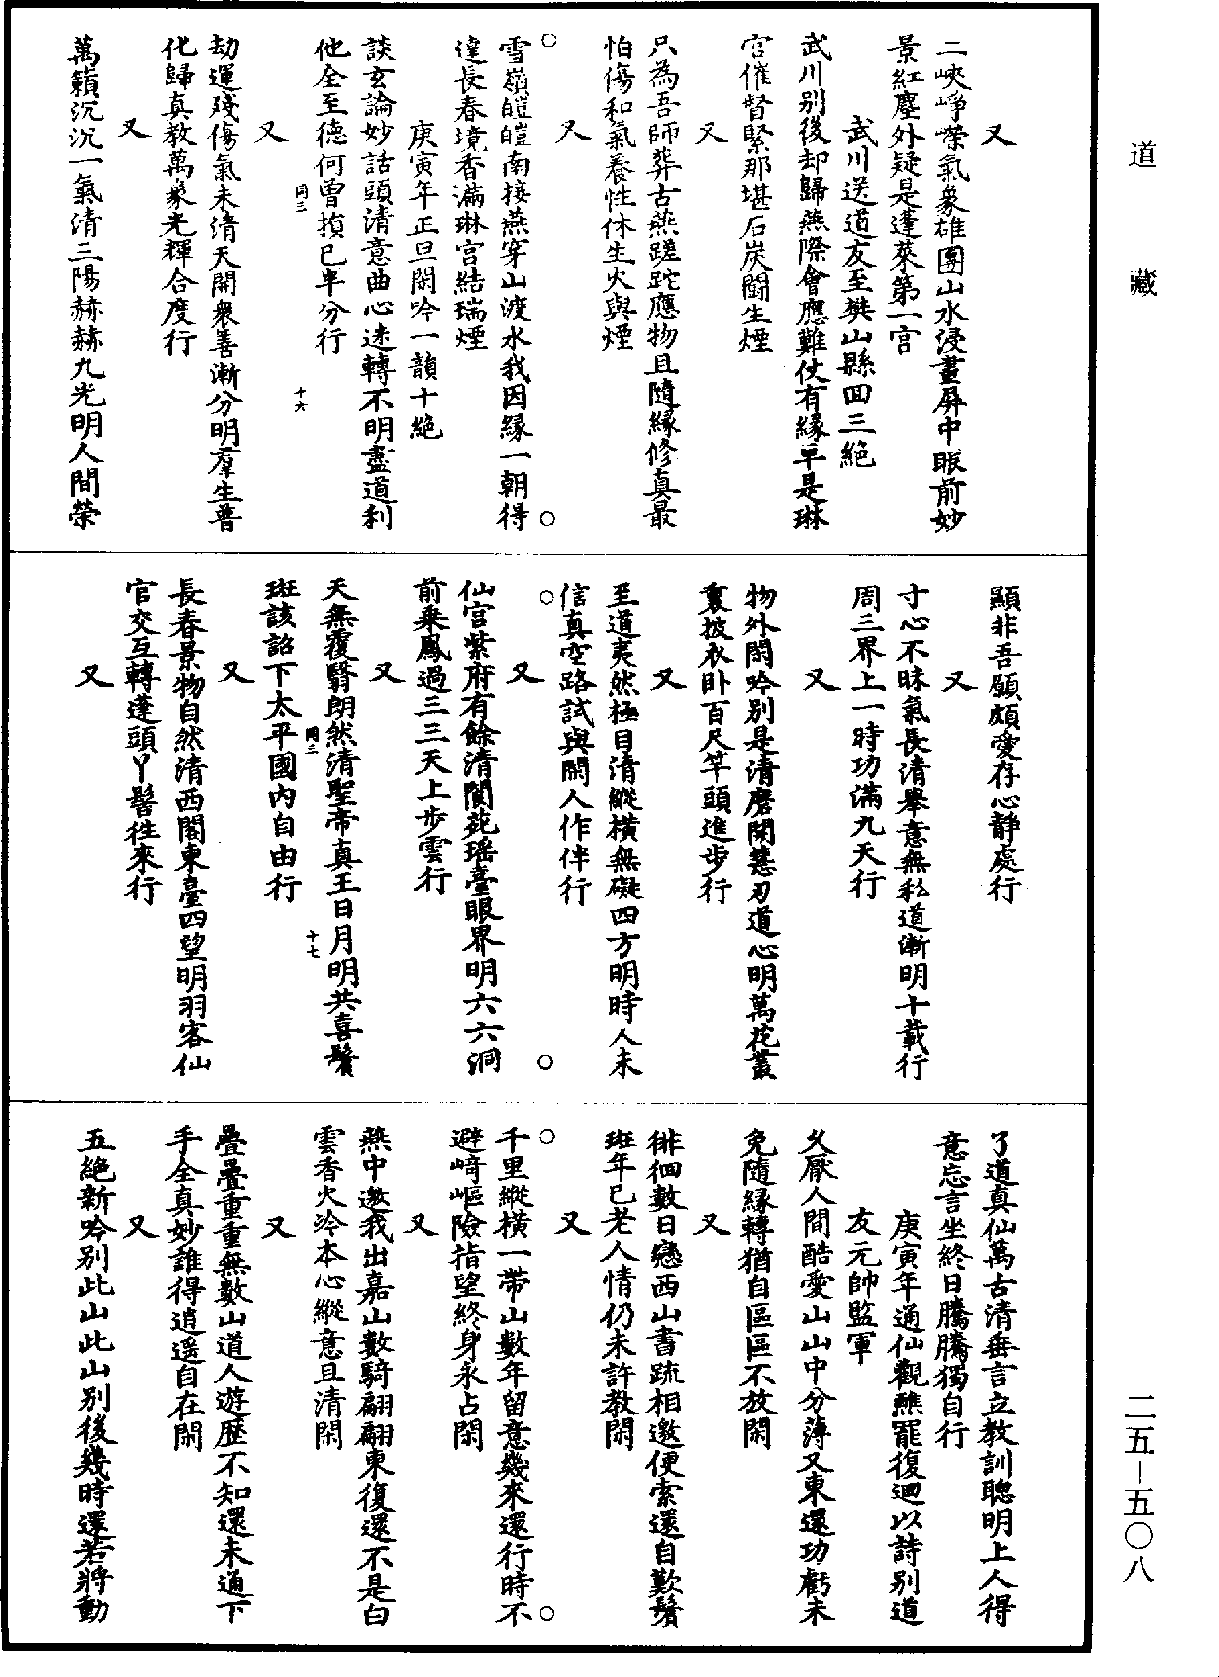 道藏
二五－五〇八
又
二峽崢嶸氣象雄團山水浸畫屏中眼前妙
景紅塵外疑是蓬萊第一宫
武川送道友至樊山縣回三絶
武川别後却歸燕際會應難仗有緣早是琳
宫催督緊那堪石炭鬭生煙
又
只為吾師葬古燕蹉跎應物且隨緣修真最
怕傷和氣養性休生火與煙
又
雪嶺皚皚南接燕穿山渡水我因緣一朝得
達長春境香滿琳宫結瑞煙
庚寅年正旦閑吟一韻十絶
談玄論妙話頭清意曲心迷轉不明盡道利
他全至德何曾損已半分行
同三
十六
又
劫運殘傷氣未清天開衆善漸分明羣生普
化歸真教萬象光輝合度行
又
萬籟沉沉一氣清三陽赫赫九光明人間榮
顯非吾願頗愛存心靜處行
又
寸心不昧氣長清舉意無私道漸明十載行
周三界上一時功滿九天行
又
物外閑吟别是清磨開慧刃道心明萬花叢
裏披衣卧百尺竿頭進步行
又
至道夷然極目清縱横無礙四方明時人未
信真空路試與閑人作伴行
又
仙宫紫府有餘清閬苑瑶臺眼界明六六洞
前乘鳳過三三天上步雲行
又
天無覆翳朗然清聖帝真王日月明共喜鬢
班該詔下太平國内自由行
同三
十七
又
長春景物自然清西閣東臺四望明羽客仙
官交互轉達頭丫髻往來行
又
了道真仙萬古清垂言立教訓聰明上人得
意忘言坐終日騰騰獨自行
庚寅年通仙觀醮罷復迴以詩别道
友元帥監軍
久厭人間酷愛山山中分薄又東還功虧未
免隨緣轉猶自區區不放閑
又
徘徊數日戀西山書疏相邀便索還自歎鬢
班年已老人情仍未許教閑
又
千里縱横一帶山數年留意幾來還行時不
避崎嶇險指望終身永占閑
又
燕中邀我出嘉山數騎翩翩東復還不是白
雲香火冷本心縱意且清閑
又
疊疊重重無數山道人遊歷不知還未通下
手全真妙誰得逍遥自在閑
又
五絶新吟别此山此山别後幾時還若將動